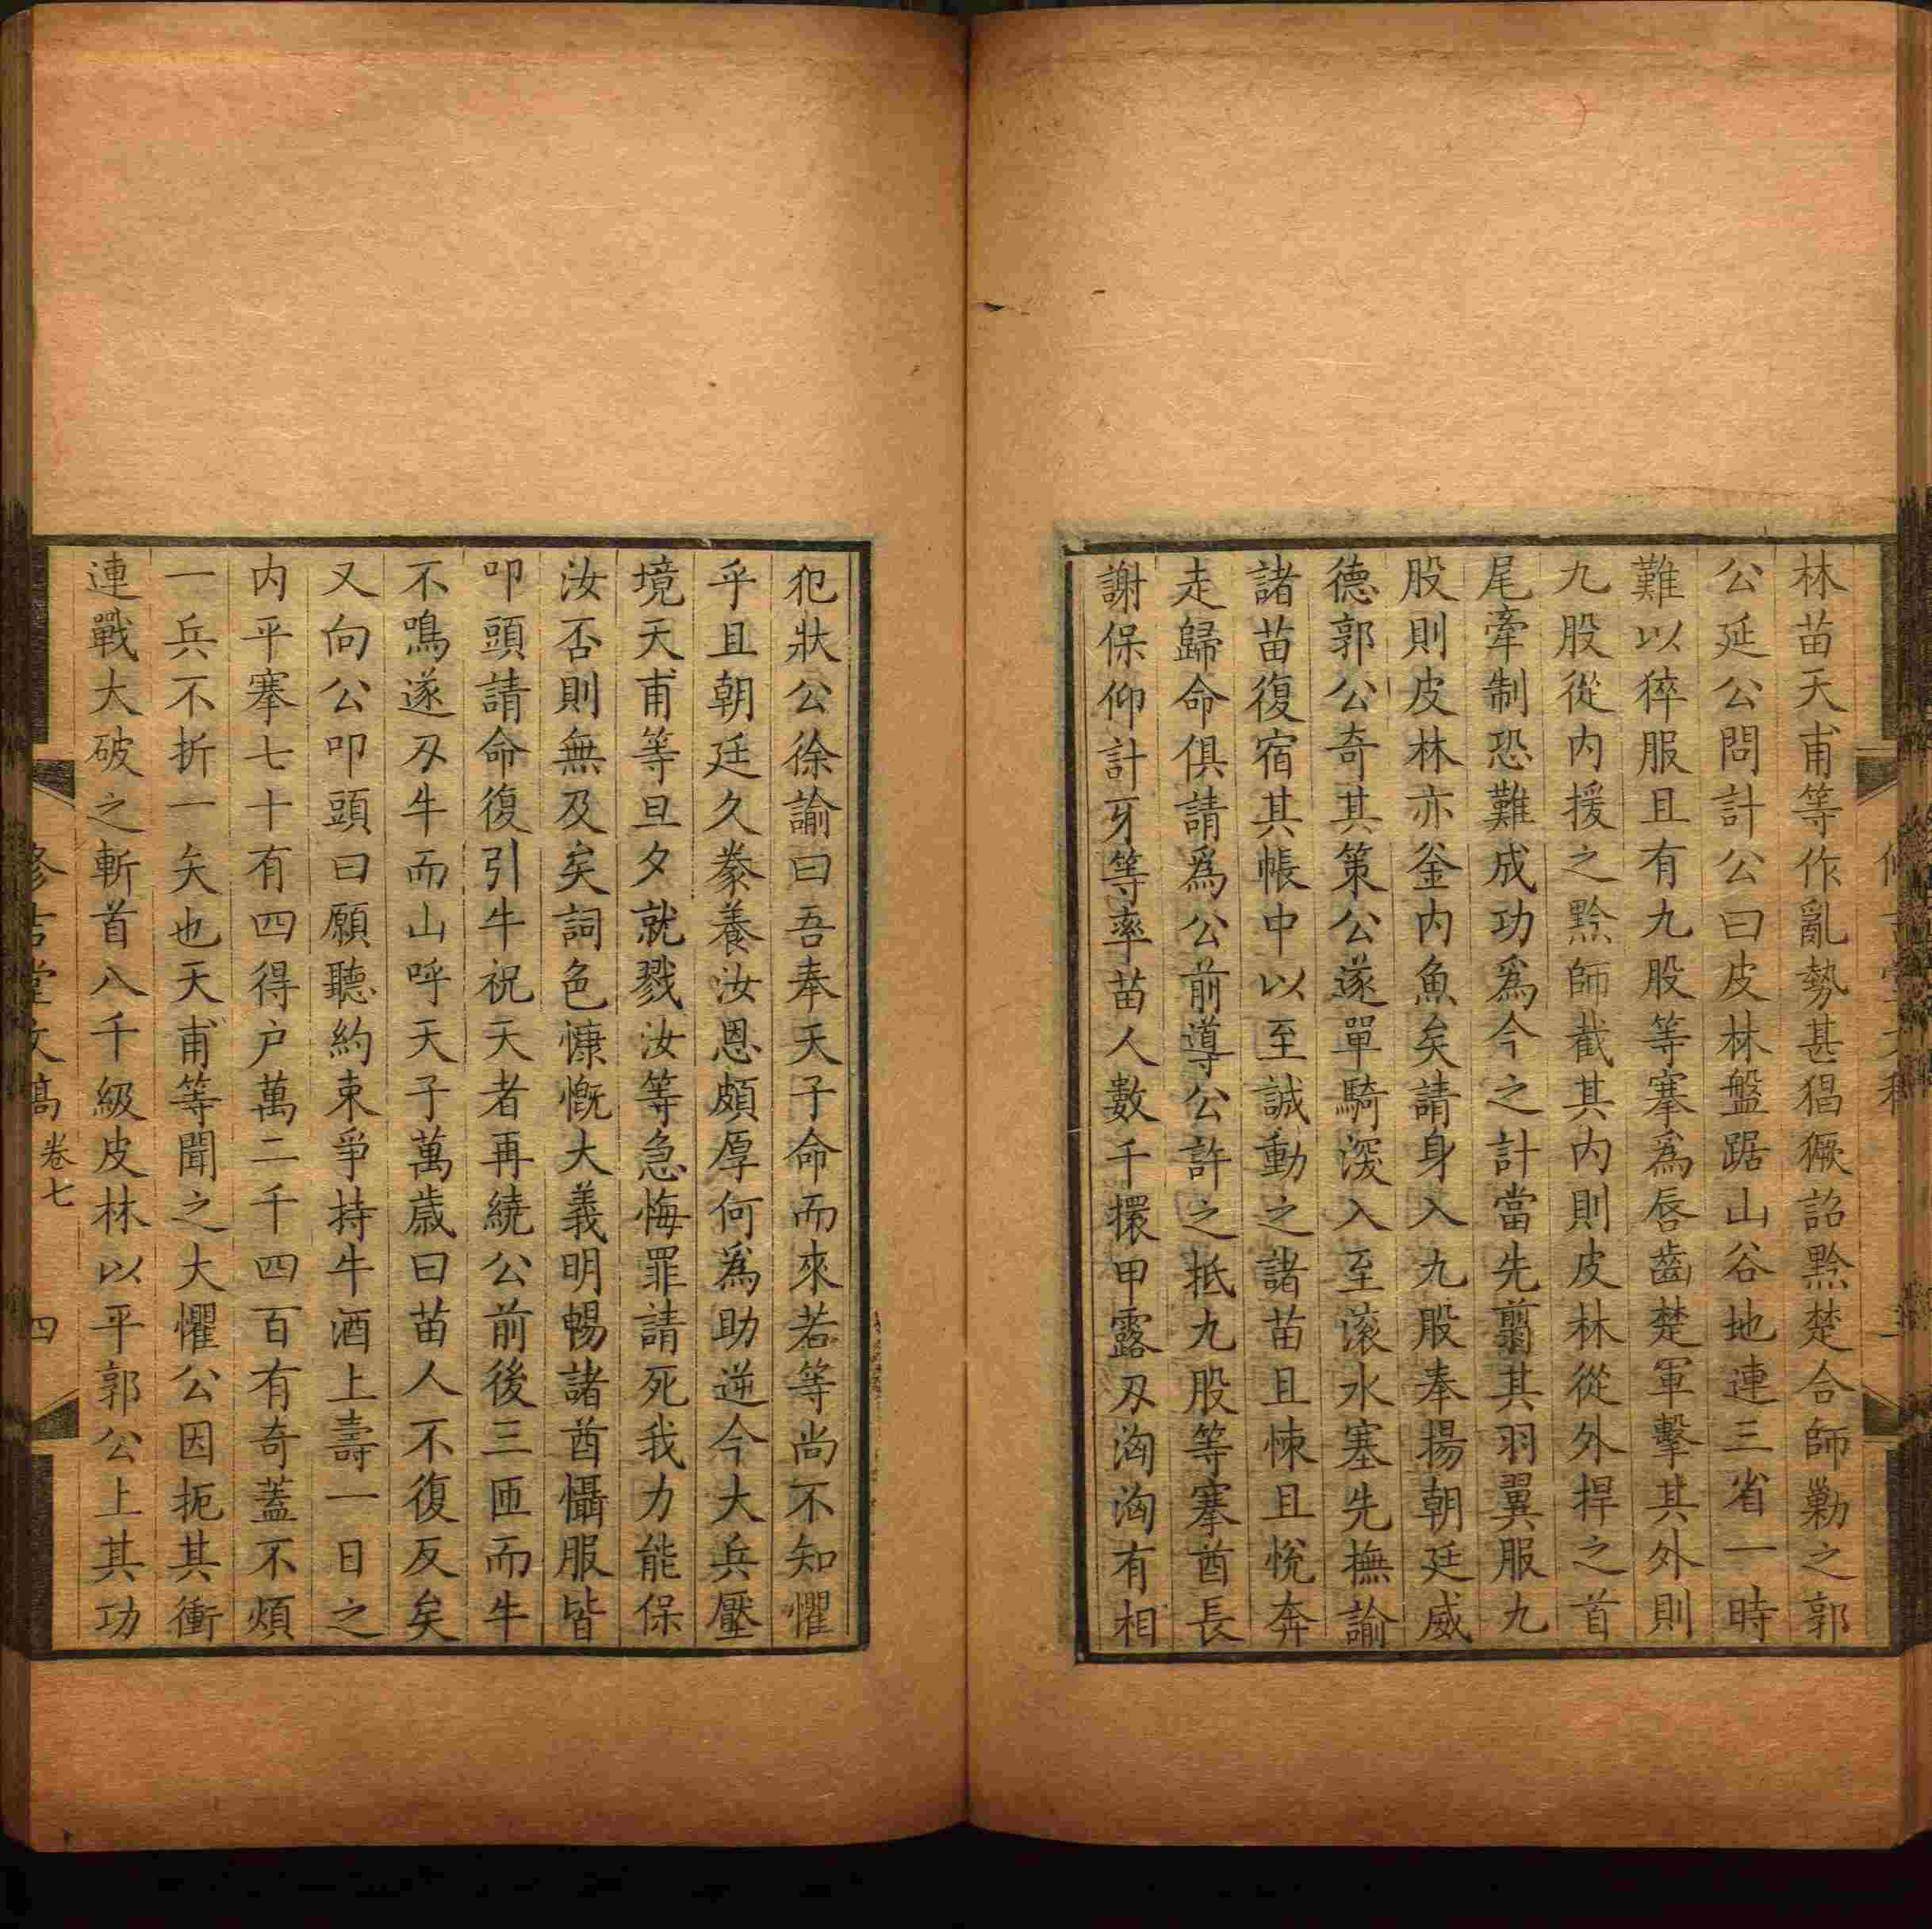 林苗天甫等作亂勢甚猖獗詔黔楚合師勦之郭
公延公問計公曰皮林盤踞山谷地連三省一時
難以猝服且有九股等寨爲唇齒楚軍擊其外則
九股從内援之黔師截其内則皮林從外捍之首
尾牽制恐難成功爲今之計當先翦其羽翼服九
股則皮林亦釜内魚矣請身入九股奉揚朝廷威
德郭公奇其策公遂單騎深入至滚水塞先撫諭
諸苗復宿其帳中以至誠動之諸苗且悚且悅奔
走歸命俱請爲公前導公許之抵九股等寨酋長
謝保仰計牙等率苗人數千擐甲露刄洶洶有相
犯狀公徐諭曰吾奉天子命而來若等尚不知懼
乎且朝廷久豢養汝恩頗厚何爲助逆今大兵壓
境天甫等旦夕就戮汝等急悔罪請死我力能保
汝否則無及矣詞色慷慨大義明暢諸酋懾服皆
叩頭請命復引牛祝天者再繞公前後三匝而牛
不鳴遂刄牛而山呼天子萬歲曰苗人不復反矣
又向公叩頭曰願聽約束爭持牛酒上壽一日之
内平寨七十有四得户萬二千四百有奇蓋不煩
一兵不折一矢也天甫等聞之大懼公因扼其衝
連戰大破之斬首八千級皮林以平郭公上其功
卷七
四